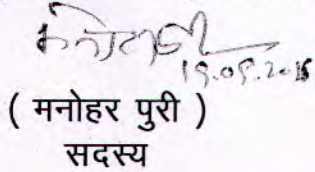 19.05.2015
( मनोहर पुरी )
सदस्य